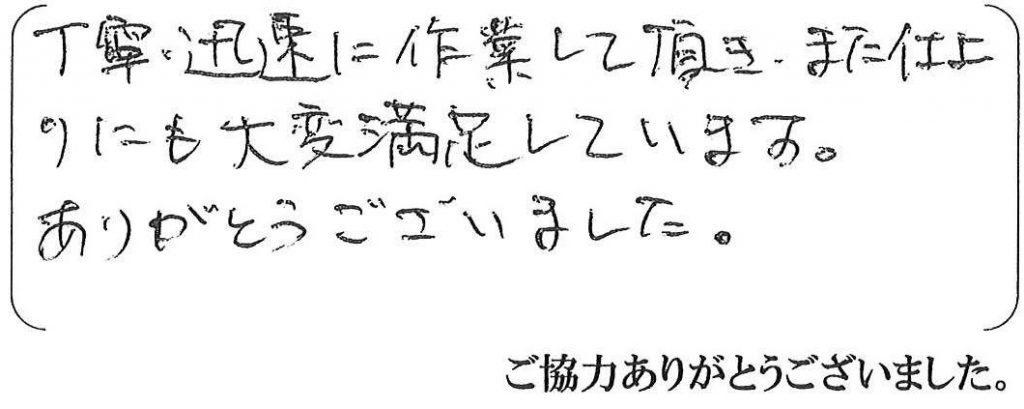 丁寧・迅速に作業して頂き、また仕上
りにも大変満足しています。
ありがとうございました。
ご協力ありがとうございました。